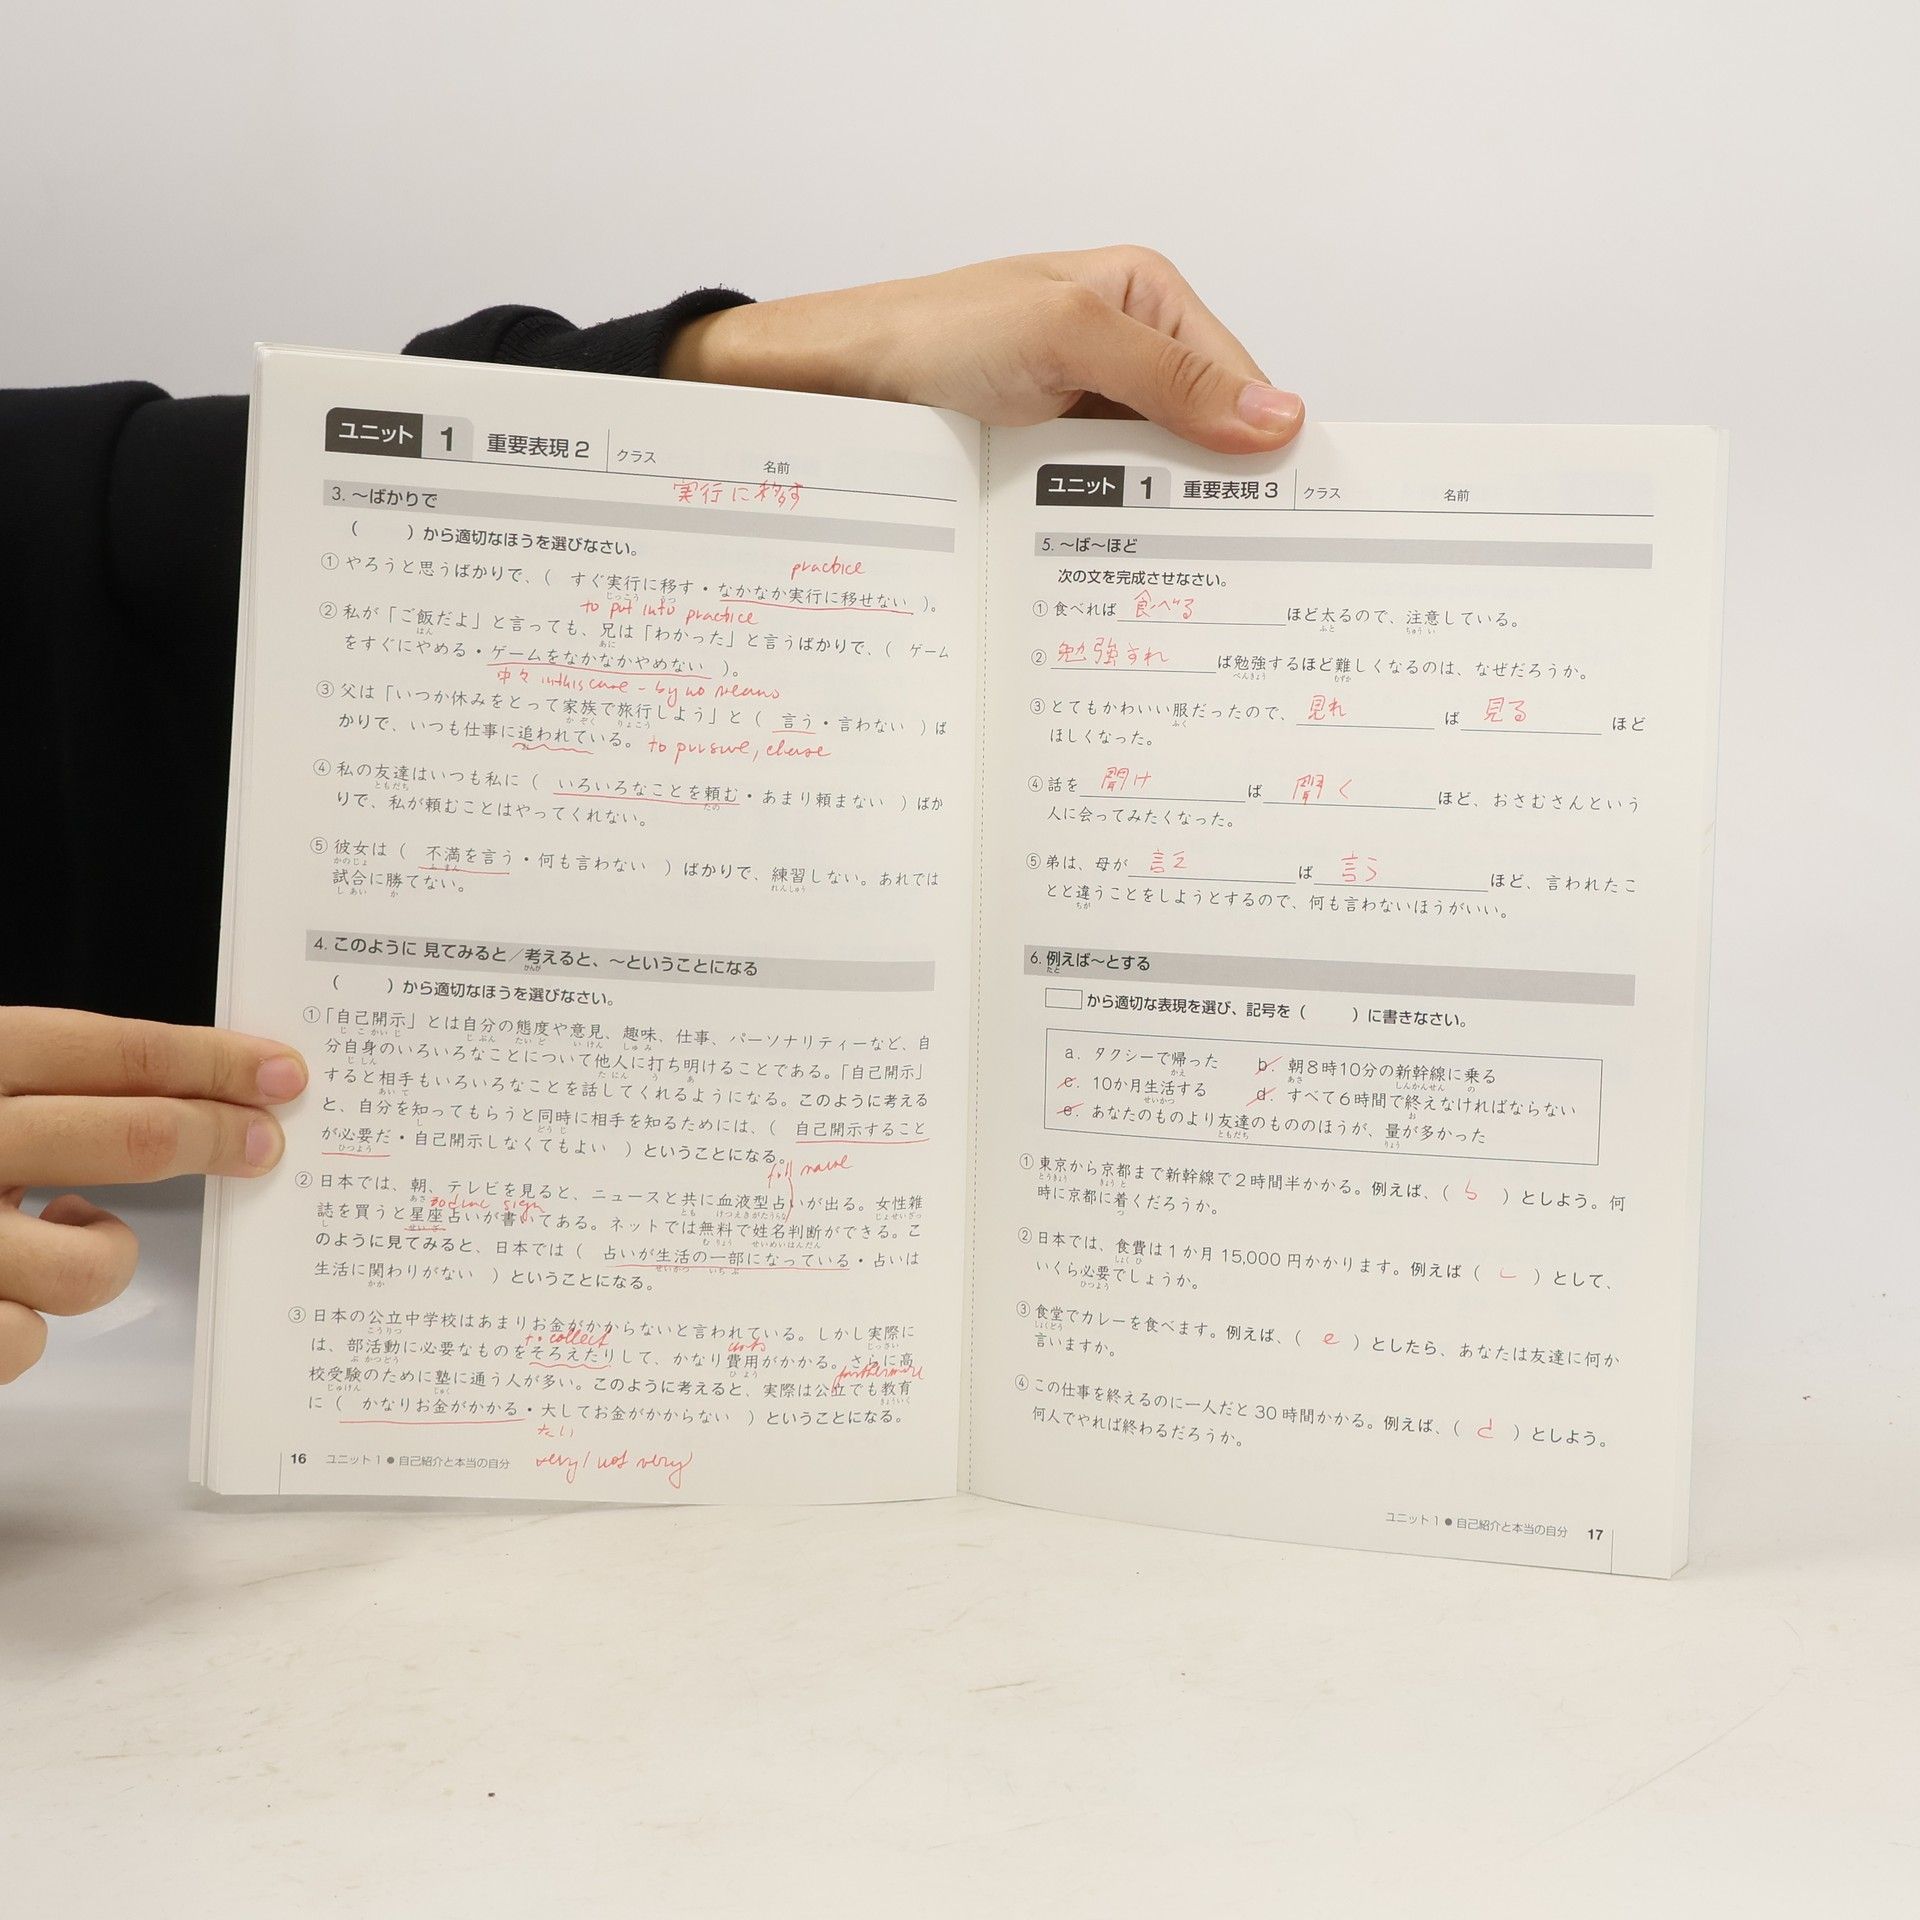 ユニット 1 重要表現 2 クラス 名前
実行に移す
3. ～ばかりで
( )から適切なほうを選びなさい。
practice
① やろうと思うばかりで、( すぐ実行に移す・なかなか実行に移せない )。
じっこう うつ
to put into practice
② 私が「ご飯だよ」と言っても、兄は「わかった」と言うばかりで、( ゲーム
はん あに
をすぐにやめる・ゲームをなかなかやめない )。
中々 in this case - by no means
③ 父は「いつか休みをとって家族で旅行しよう」と( 言う・言わない )ば
かぞく りょこう
かりで、いつも仕事に追われている。 to pursue, chase
④ 私の友達はいつも私に( いろいろなことを頼む・あまり頼まない )ばか
ともだち たの
りで、私が頼むことはやってくれない。
⑤ 彼女は( 不満を言う・何も言わない )ばかりで、練習しない。あれでは
かのじょ ふまん れんしゅう
試合に勝てない。
しあい か
4. このように 見てみると／考えると、～ということになる
かんが
( )から適切なほうを選びなさい。
①「自己開示」とは自分の態度や意見、趣味、仕事、パーソナリティーなど、自
じこかいじ じぶん たいど いけん しゅみ
分自身のいろいろなことについて他人に打ち明けることである。「自己開示」
じしん たにん う あ
すると相手もいろいろなことを話してくれるようになる。このように考える
あいて
と、自分を知ってもらうと同時に相手を知るためには、( 自己開示すること
し どうじ
が必要だ・自己開示しなくてもよい )ということになる。
ひつよう
full name
② 日本では、朝、テレビを見ると、ニュースと共に血液型占いが出る。女性雑
あさ zodiac sign とも けつえきがたうらな じょせいざっ
誌を買うと星座占いが書いてある。ネットでは無料で姓名判断ができる。こ
し せいざ むりょう せいめいはんだん
のように見てみると、日本では( 占いが生活の一部になっている・占いは
せいかつ いちぶ
生活に関わりがない )ということになる。
かか
③ 日本の公立中学校はあまりお金がかからないと言われている。しかし実際に
こうりつ to collect じっさい
は、部活動に必要なものをそろえたりして、かなり費用がかかる。さらに高
ぶかつどう ひよう furthermore
校受験のために塾に通う人が多い。このように考えると、実際は公立でも教育
じゅけん じゅく きょういく
に( かなりお金がかかる・大してお金がかからない )ということになる。
たい
very / not very
16 ユニット 1 ● 自己紹介と本当の自分
ユニット 1 重要表現 3 クラス 名前
5. ～ば～ほど
次の文を完成させなさい。
① 食べれば 食べる ほど太るので、注意している。
ふと ちゅうい
② 勉強すれ ば勉強するほど難しくなるのは、なぜだろうか。
べんきょう むずか
③ とてもかわいい服だったので、 見れ ば 見る ほど
ふく
ほしくなった。
④ 話を 聞け ば 聞く ほど、おさむさんという
人に会ってみたくなった。
⑤ 弟は、母が 言え ば 言う ほど、言われたこ
とと違うことをしようとするので、何も言わないほうがいい。
ちが
6. 例えば～とする
たと
から適切な表現を選び、記号を( )に書きなさい。
a. タクシーで帰った b. 朝8時10分の新幹線に乗る
かえ あさ しんかんせん の
c. 10か月生活する d. すべて6時間で終えなければならない
せいかつ お
e. あなたのものより友達のもののほうが、量が多かった
ともだち りょう
① 東京から京都まで新幹線で2時間半かかる。例えば、( b )としよう。何
とうきょう きょうと
時に京都に着くだろうか。
つ
② 日本では、食費は1か月 15,000 円かかります。例えば( c )として、
しょくひ
いくら必要でしょうか。
ひつよう
③ 食堂でカレーを食べます。例えば、( e )としたら、あなたは友達に何か
しょくどう
言いますか。
④ この仕事を終えるのに一人だと 30 時間かかる。例えば、( d )としよう。
何人でやれば終わるだろうか。
ユニット 1 ● 自己紹介と本当の自分 17